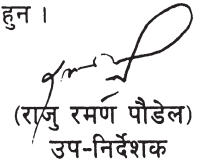 हुन ।
(राजु रमण पौडेल)
उप-निर्देशक